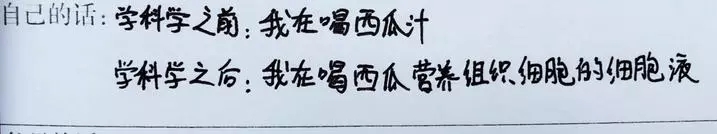 自己的话：学科学之前：我在喝西瓜汁
学科学之后：我在喝西瓜营养组织细胞的细胞液